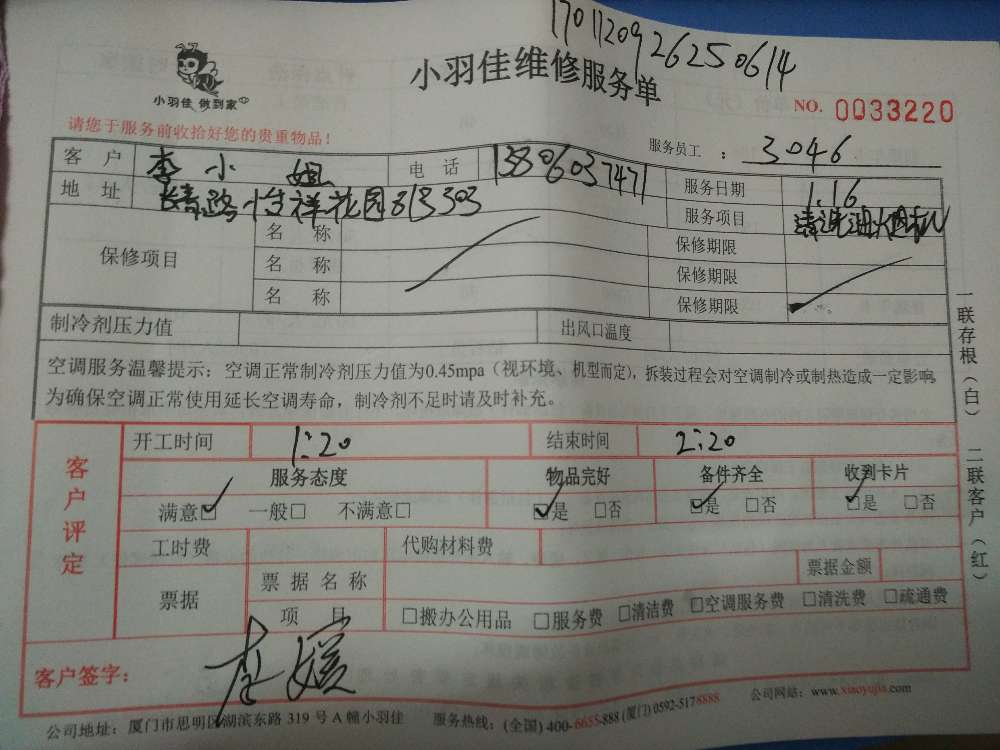 1701120926250614
小羽佳 做到家
小羽佳维修服务单
NO. 0033220
请您于服务前收拾好您的贵重物品！
服务员工 ： 3046
客 户 李小姐 电 话 13806037471 服务日期 1.16
地 址 长青路 怡祥花园813303 服务项目 清洗油烟机
保修项目 名 称 保修期限
名 称 保修期限
名 称 保修期限
制冷剂压力值 出风口温度
空调服务温馨提示：空调正常制冷剂压力值为0.45mpa（视环境、机型而定），拆装过程会对空调制冷或制热造成一定影响，
为确保空调正常使用延长空调寿命，制冷剂不足时请及时补充。
客户评定
开工时间 1:20 结束时间 2:20
服务态度 物品完好 备件齐全 收到卡片
满意☑ 一般□ 不满意□ ☑是 □否 ☑是 □否 ☑是 □否
工时费 代购材料费
票据 票据名称 票据金额
项 目 □搬办公用品 □服务费 □清洁费 □空调服务费 □清洗费 □疏通费
客户签字：
公司地址：厦门市思明区湖滨东路 319 号 A 幢小羽佳 服务热线：(全国) 400-6655-888 (厦门) 0592-5178888 公司网站：www.xiaoyujia.com
一联存根（白） 二联客户（红）